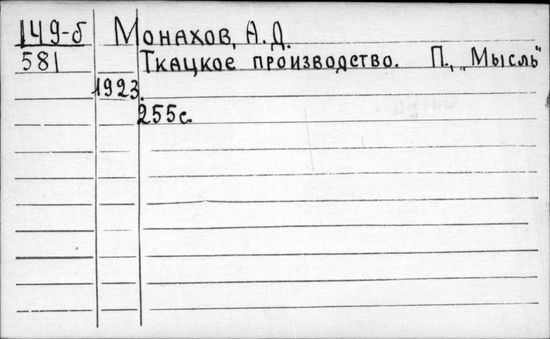 149-б Монахов, А.Д.
581 Ткацкое производство. П., „Мысль"
1923.
255с.